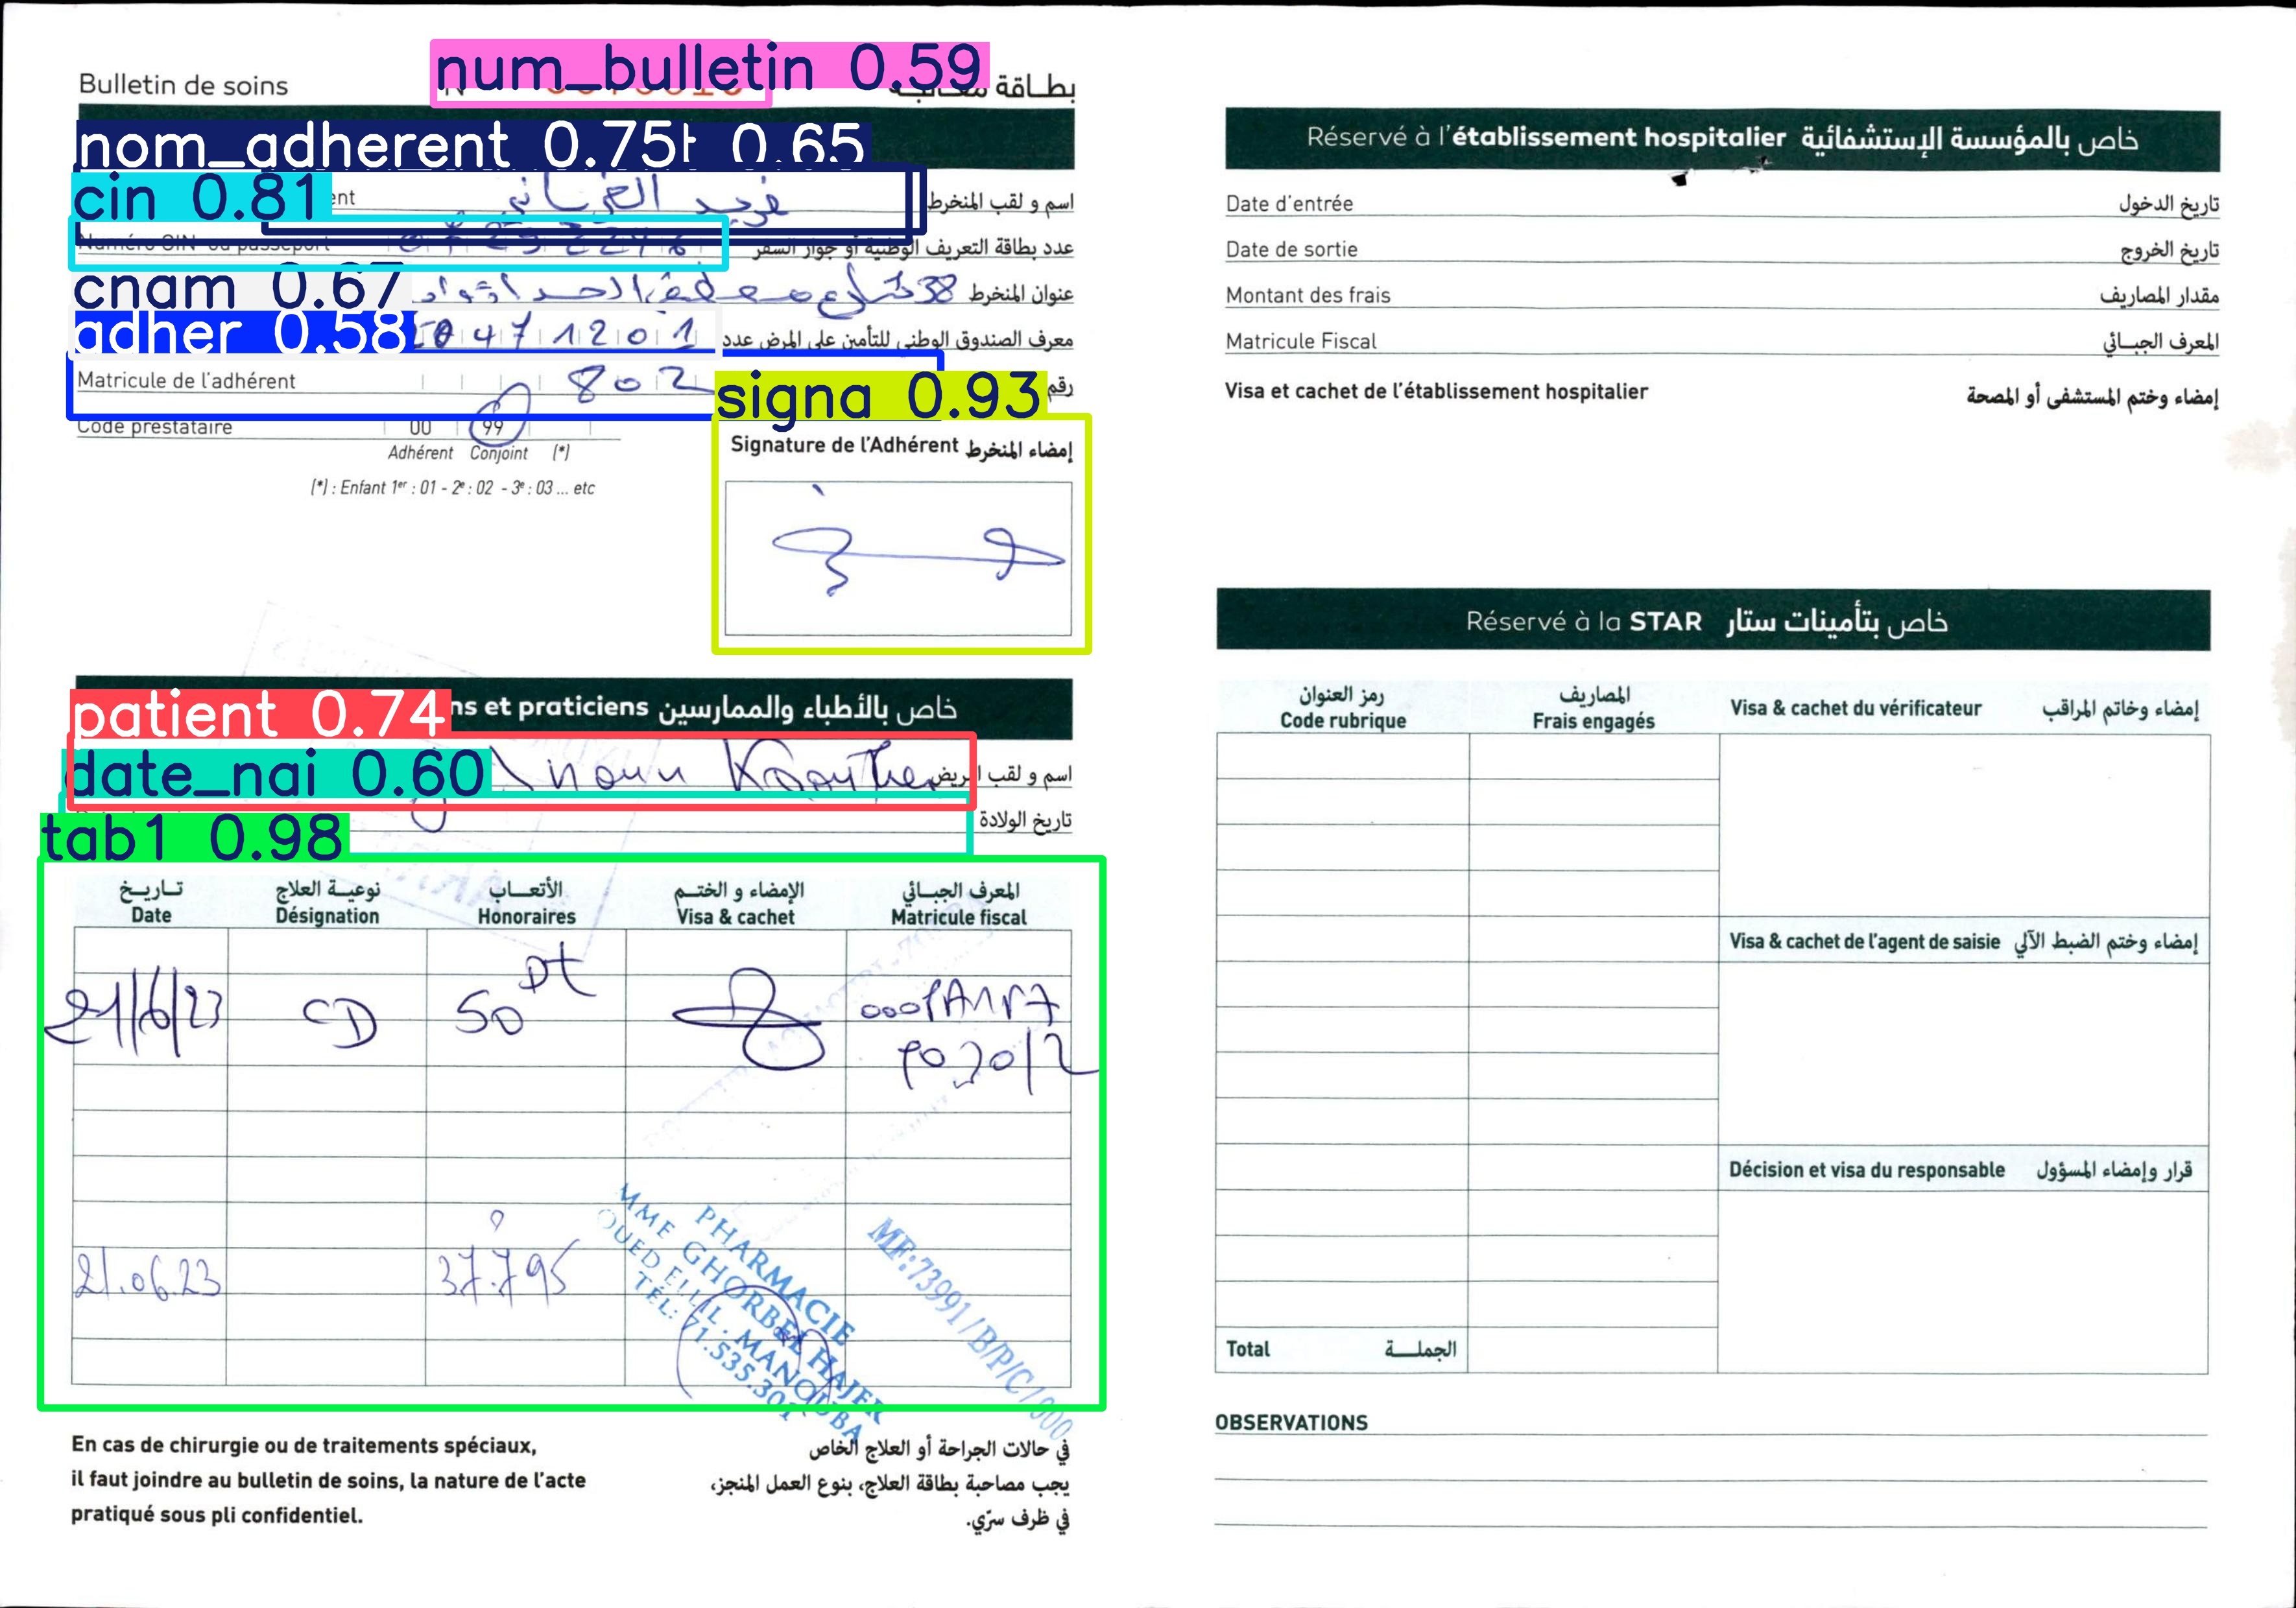 Bulletin de soins
num_bulletin 0.59
بطاقة
nom_adherent 0.75
0.65
cin 0.81
اسم و لقب المنخرط
عدد بطاقة التعريف الوطنية أو جواز السفر
cnam 0.67
38
عنوان المنخرط
adher 0.58
0471201
معرف الصندوق الوطني للتأمين على المرض عدد
Matricule de l'adhérent
802
رقم
signa 0.93
Code prestataire 00 99
Adhérent Conjoint (*)
(*) : Enfant 1er : 01 - 2e : 02 - 3e : 03 ... etc
Signature de l'Adhérent إمضاء المنخرط
patient 0.74
ns et praticiens خاص بالأطباء والممارسين
date_nai 0.60
اسم و لقب المريض
تاريخ الولادة
tab1 0.98
تاريخ نوعية العلاج الأتعاب الإمضاء و الختم المعرف الجبائي
Date Désignation Honoraires Visa & cachet Matricule fiscal
21/6/23 CD 50 Dt
21.06.23 37.795
PHARMACIE
MME GHORBEL HAJER
OUED ELLIL . MANOUBA
TÉL: 71.535.301
MF:73991/B/P/C/000
En cas de chirurgie ou de traitements spéciaux,
il faut joindre au bulletin de soins, la nature de l'acte
pratiqué sous pli confidentiel.
في حالات الجراحة أو العلاج الخاص
يجب مصاحبة بطاقة العلاج، بنوع العمل المنجز،
في ظرف سرّي.
Réservé à l'établissement hospitalier خاص بالمؤسسة الإستشفائية
Date d'entrée تاريخ الدخول
Date de sortie تاريخ الخروج
Montant des frais مقدار المصاريف
Matricule Fiscal المعرف الجبائي
Visa et cachet de l'établissement hospitalier إمضاء وختم المستشفى أو المصحة
Réservé à la STAR خاص بتأمينات ستار
رمز العنوان المصاريف
Code rubrique Frais engagés
Visa & cachet du vérificateur إمضاء وخاتم المراقب
Visa & cachet de l'agent de saisie إمضاء وختم الضبط الآلي
Décision et visa du responsable قرار وإمضاء المسؤول
Total الجملة
OBSERVATIONS